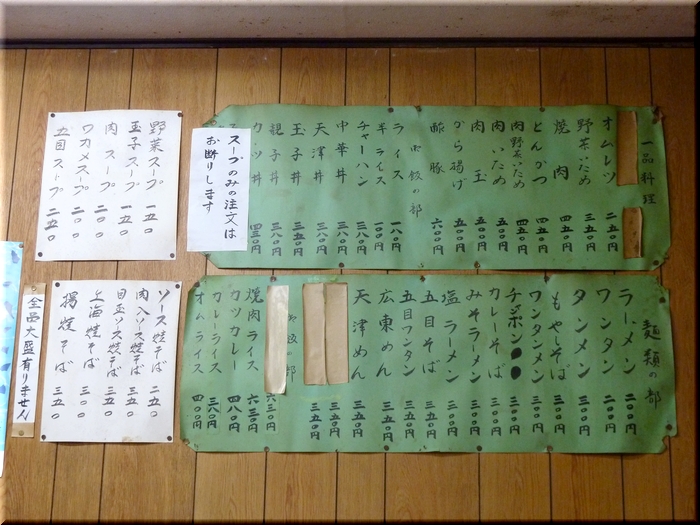 一品料理
オムレツ 二五〇円
野菜いため 三五〇円
焼肉 四五〇円
とんかつ 四五〇円
肉野菜いため 四五〇円
肉いため 五〇〇円
肉玉 五〇〇円
から揚げ 五〇〇円
酢豚 六〇〇円
御飯の部
ライス 一八〇円
半ライス 一〇〇円
チャーハン 三八〇円
中華丼 三八〇円
天津丼 三八〇円
玉子丼 三五〇円
親子丼 三八〇円
カツ丼 四五〇円
スープのみの注文は
お断りします
野菜スープ 一五〇
玉子スープ 一五〇
肉スープ 二〇〇
ワカメスープ 二〇〇
五目スープ 二五〇
麺類の部
ラーメン 二〇〇円
ワンタン 二〇〇円
タンメン 三〇〇円
もやしそば 三〇〇円
ワンタンメン 三〇〇円
チャンポン●● 三五〇円
カレーそば 三〇〇円
みそラーメン 三〇〇円
塩ラーメン 三〇〇円
五目そば 三五〇円
五目ワンタン 三五〇円
広東めん 三五〇円
天津めん 三五〇円
三五〇円
三五〇円
御飯の部
六三〇円
焼肉ライス 六三〇円
カツカレー 四八〇円
カレーライス 三八〇円
オムライス 四〇〇円
ソース焼そば 二五〇
肉入ソース焼そば 三五〇
目玉ソース焼そば 三五〇
上海焼そば 三〇〇
揚焼そば 三五〇
全品大盛有りません